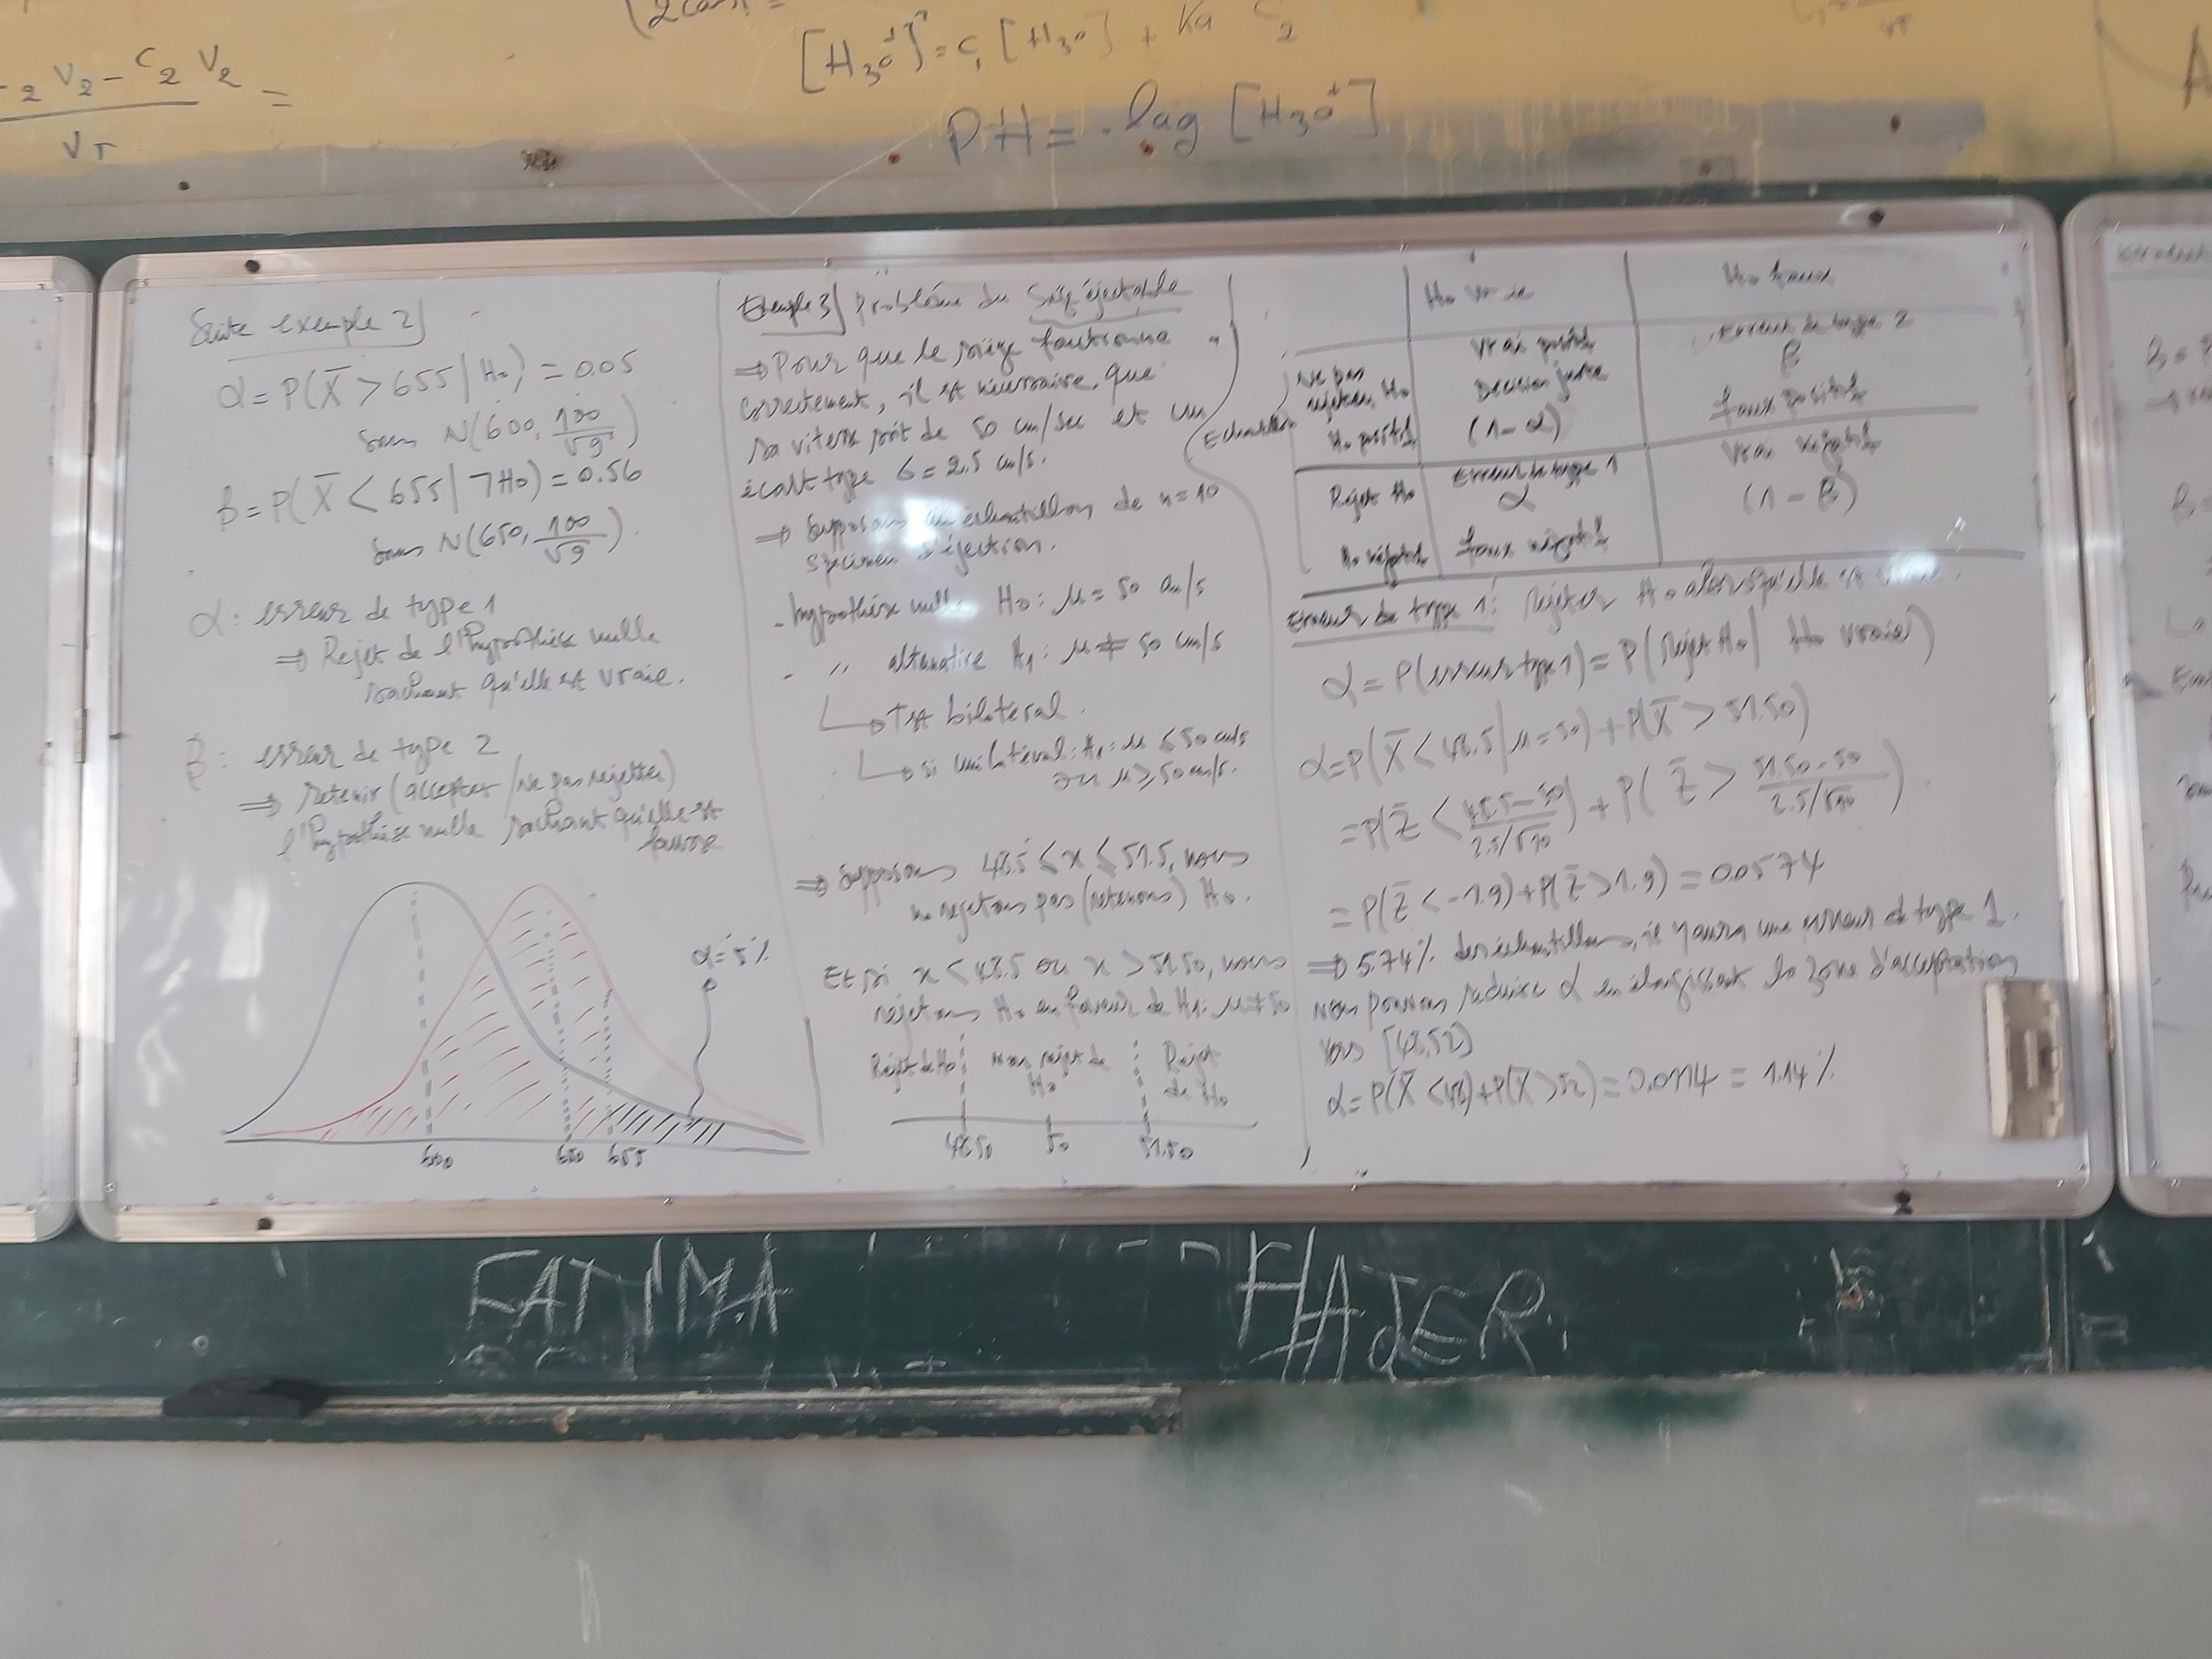 [H3O+] = C1 [H3O] + Ka C2
2 V2 - C2 V2 =
VT
PH = - log [H3O+]
Suite exemple 2)
α = P(X̄ > 655 | H0) = 0.05
sous N(600, 100/√9)
β = P(X̄ < 655 | 7H0) = 0.56
sous N(650, 100/√9).
α : erreur de type 1
⇒ Rejet de l'hypothèse nulle
sachant qu'elle est vraie.
β : erreur de type 2
⇒ retenir (accepter / Ne pas rejetter)
l'hypothèse nulle sachant qu'elle est
fausse
α = 5%
600 650 655
Exemple 3) Problème du Siège éjectable
⇒ Pour que le siège fonctionne
correctement, il est nécessaire que
sa vitesse soit de 50 cm/sec et un
écart type σ = 2.5 cm/s.
⇒ Supposons un échantillon de n = 10
spécimen d'éjection.
- hypothèse nulle H0 : μ = 50 cm/s
- " altenative H1 : μ ≠ 50 cm/s
↳ Test bilatéral.
↳ si unilatéral : H1 : μ ≤ 50 cm/s
ou μ ≥ 50 cm/s.
⇒ Supposons 48.5 ≤ x ≤ 51.5, nous
ne rejetons pas (retenons) H0.
Et si x < 48.5 ou x > 51.50, nous
rejetons H0 en faveur de H1 : μ ≠ 50
Rejet de H0 non rejet de H0 Rejet de H0
48.50 50 51.50
H0 vraie H0 faux
Echantillon
Ne pas rejeter H0
H0 positif
vrai positif
Décision juste
(1 - α)
Erreur de type 2
β
faux positif
Rejet H0
H0 négatif
Erreur de type 1
α
faux négatif
vrai négatif
(1 - β)
Erreur de type 1 : Rejeter H0 alors qu'elle est vraie.
α = P(erreur type 1) = P(Rejet H0 | H0 vraie)
α = P(X̄ < 48.5 | μ = 50) + P(X̄ > 51.50)
= P(Z̄ < 48.5 - 50 / 2.5/√10) + P(Z̄ > 51.50 - 50 / 2.5/√10).
= P(Z̄ < -1.9) + P(Z̄ > 1.9) = 0.0574
⇒ 5.74% des échantillons, il y aura une erreur de type 1.
nous pouvons réduire α en élargissant la zone d'acceptation
vers [48,52]
α = P(X̄ < 48) + P(X̄ > 52) = 0.0114 = 1.14%
FATIMA HAJER